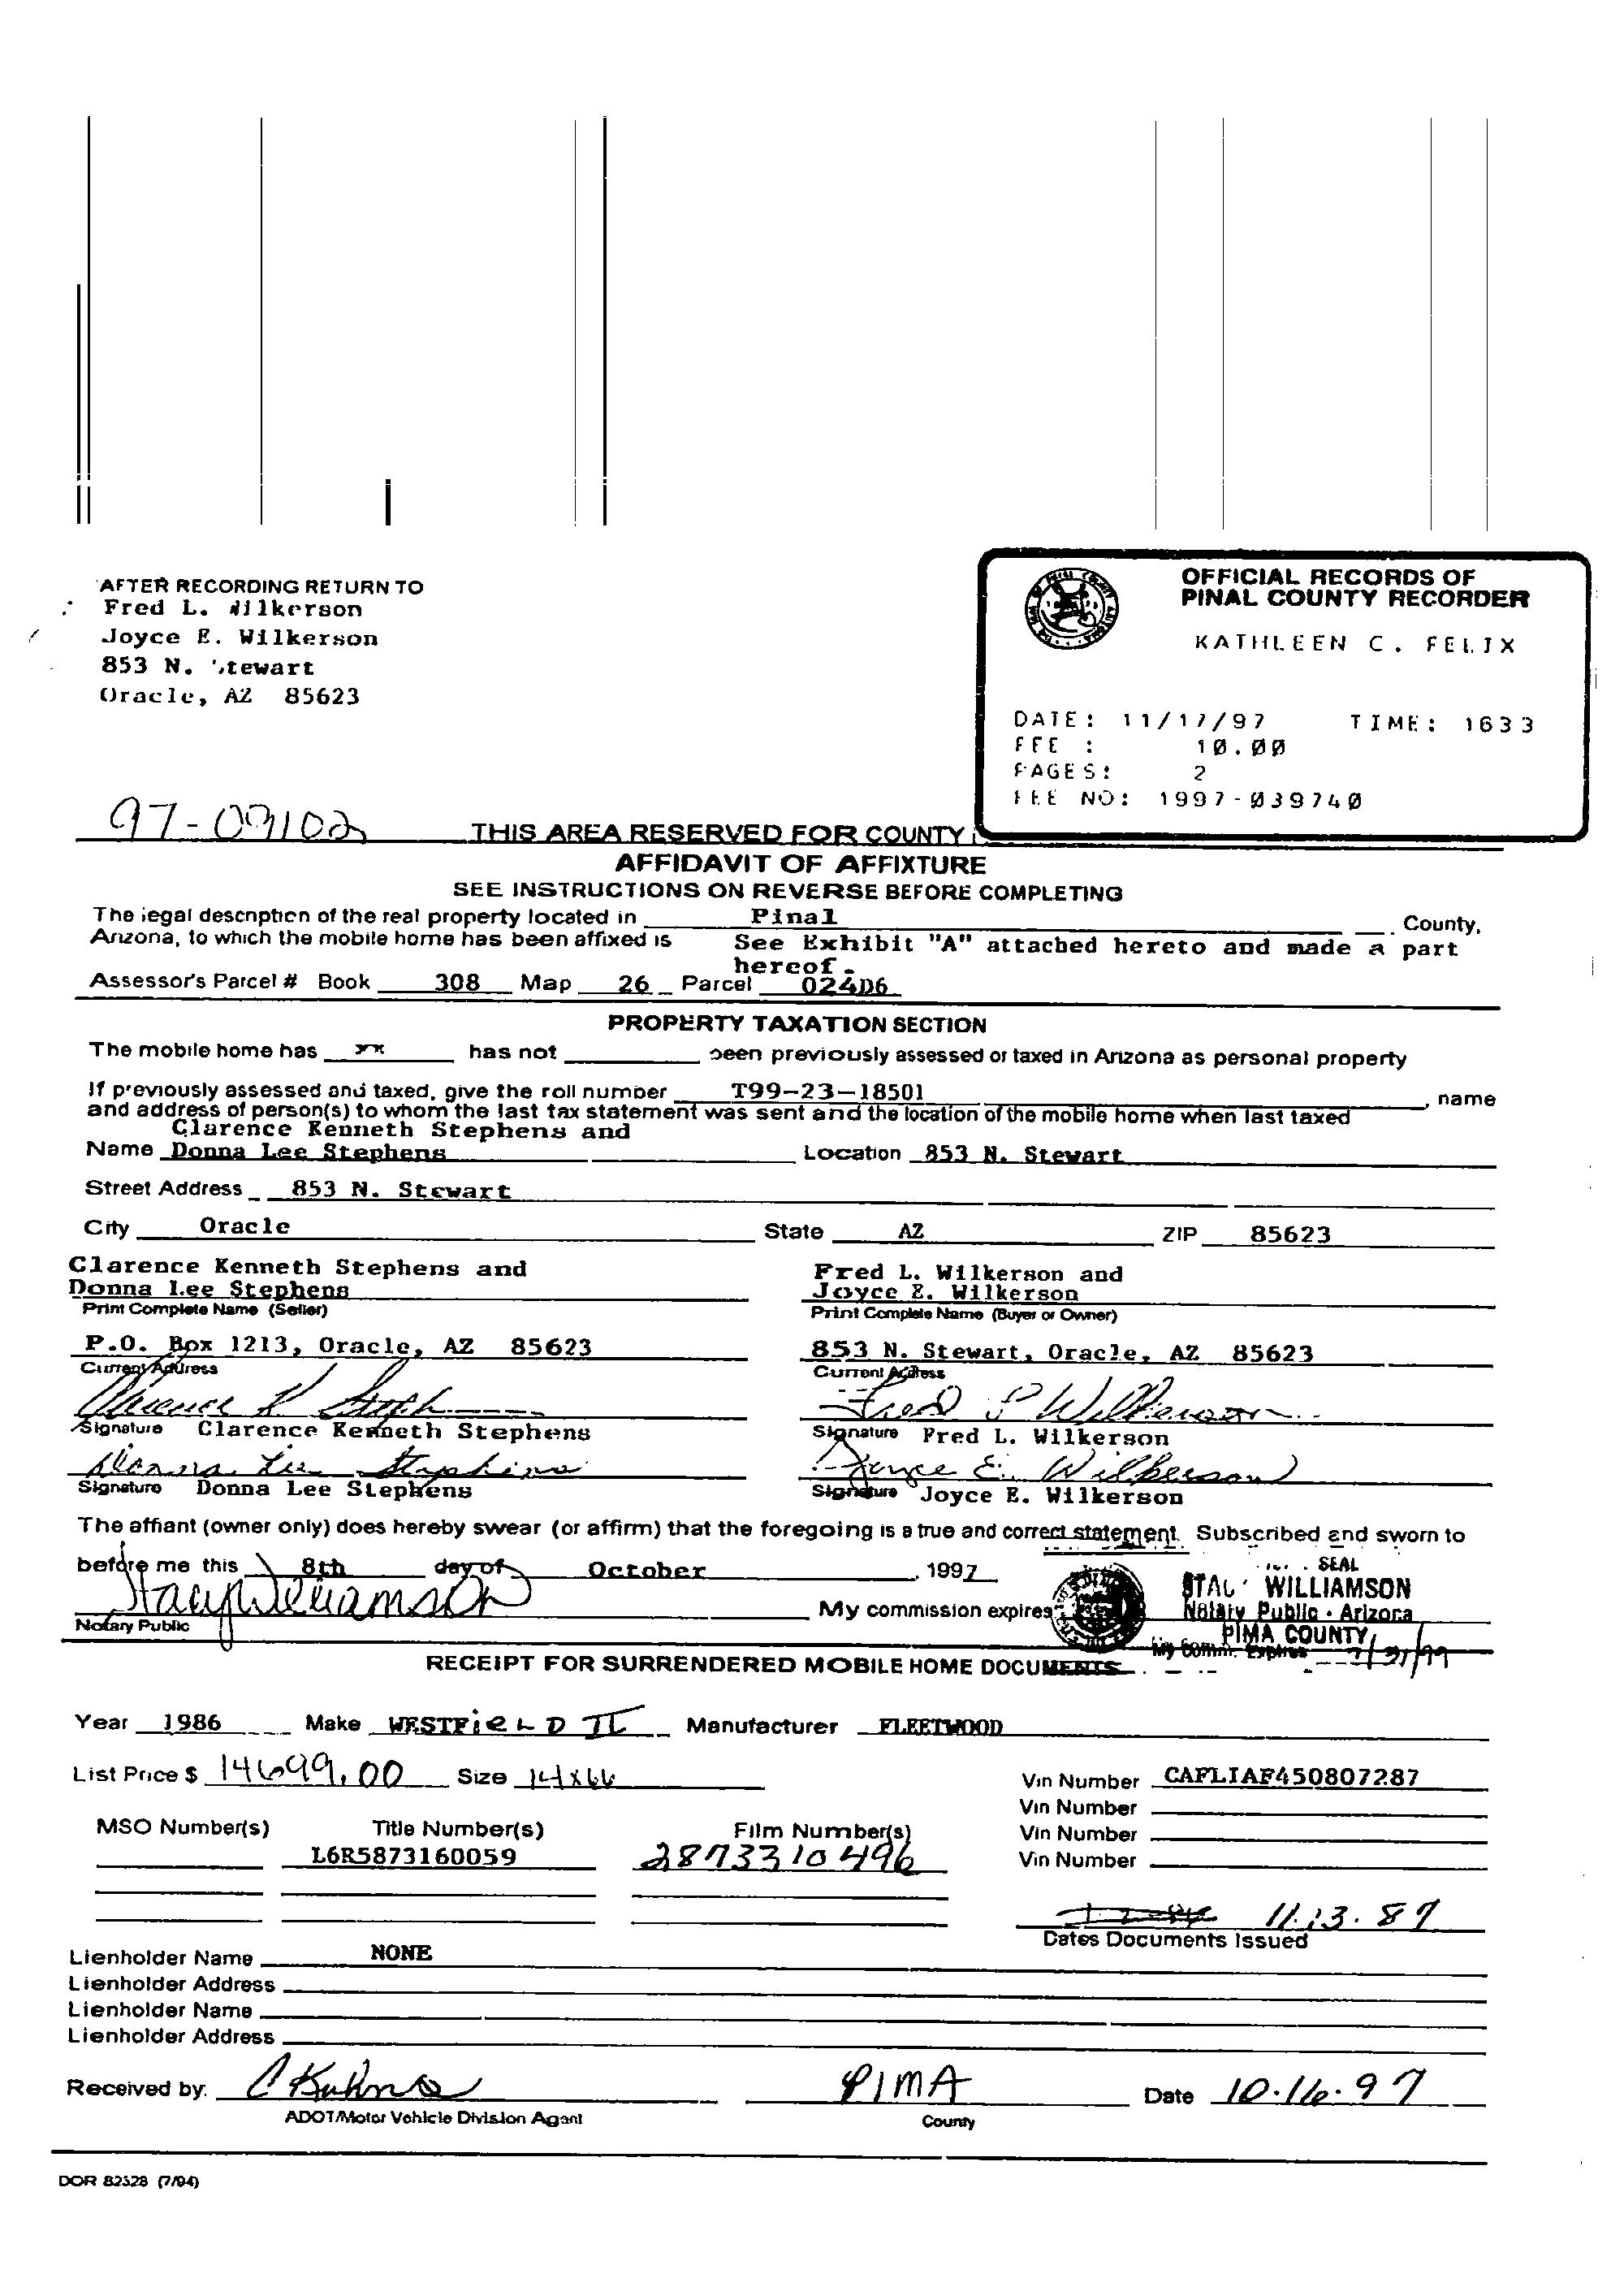 AFTER RECORDING RETURN TO
Fred L. Wilkerson
Joyce E. Wilkerson
853 N. Stewart
Oracle, AZ 85623
OFFICIAL RECORDS OF
PINAL COUNTY RECORDER
KATHLEEN C. FELIX
DATE: 11/17/97 TIME: 1633
FEE : 10.00
PAGES: 2
FEE NO: 1997-039740
97-
THIS AREA RESERVED FOR COUNTY
AFFIDAVIT OF AFFIXTURE
SEE INSTRUCTIONS ON REVERSE BEFORE COMPLETING
The legal description of the real property located in Pinal County,
Arizona, to which the mobile home has been affixed is See Exhibit "A" attached hereto and made a part
hereof.
Assessor's Parcel # Book 308 Map 26 Parcel 024D6
PROPERTY TAXATION SECTION
The mobile home has xx has not been previously assessed or taxed in Arizona as personal property
If previously assessed and taxed, give the roll number T99-23-18501, name
and address of person(s) to whom the last tax statement was sent and the location of the mobile home when last taxed
Clarence Kenneth Stephens and
Name Donna Lee Stephens Location 853 N. Stewart
Street Address 853 N. Stewart
City Oracle State AZ ZIP 85623
Clarence Kenneth Stephens and Fred L. Wilkerson and
Donna Lee Stephens Joyce E. Wilkerson
Print Complete Name (Seller) Print Complete Name (Buyer or Owner)
P.O. Box 1213, Oracle, AZ 85623 853 N. Stewart, Oracle, AZ 85623
Current Address Current Address
Clarence K Fred Wilkerson
Signature Clarence Kenneth Stephens Signature Fred L. Wilkerson
Donna Lee Stephens Joyce E. Wilkerson
Signature Donna Lee Stephens Signature Joyce E. Wilkerson
The affiant (owner only) does hereby swear (or affirm) that the foregoing is a true and correct statement. Subscribed and sworn to
before me this 8th day of October, 1997 SEAL
Stacy Williamson My commission expires WILLIAMSON
Notary Public Notary Public - Arizona
PIMA COUNTY
My Comm. Expires 7/31/99
RECEIPT FOR SURRENDERED MOBILE HOME DOCUMENTS
Year 1986 Make WESTFiELD II Manufacturer FLEETWOOD
List Price $ 14699.00 Size 14x66 Vin Number CAFLIAF450807287
Vin Number
MSO Number(s) Title Number(s) Film Number(s) Vin Number
L6R5873160059 2873310496 Vin Number
11.13.87
Dates Documents Issued
Lienholder Name NONE
Lienholder Address
Lienholder Name
Lienholder Address
Received by: C Kuhns PIMA Date 10.16.97
ADOT/Motor Vehicle Division Agent County
DOR 82528 (7/94)